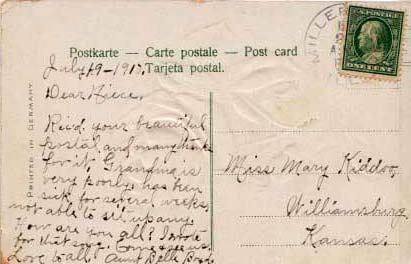 Postkarte – Carte postale – Post card
Tarjeta postal.
July 19-1917,
Dear Niece,
Rec'd your beautiful
postal and many thanks
for it, Grandma is
very poorly has been
sick for several weeks,
not able to sit up any.
How are you all? I wrote
for that song. Come see us.
Love to all. Aunt Belle
Miss Mary Kiddoo,
Williamsburg
Kansas.
PRINTED IN GERMANY
MILLER
U.S. POSTAGE
ONE CENT